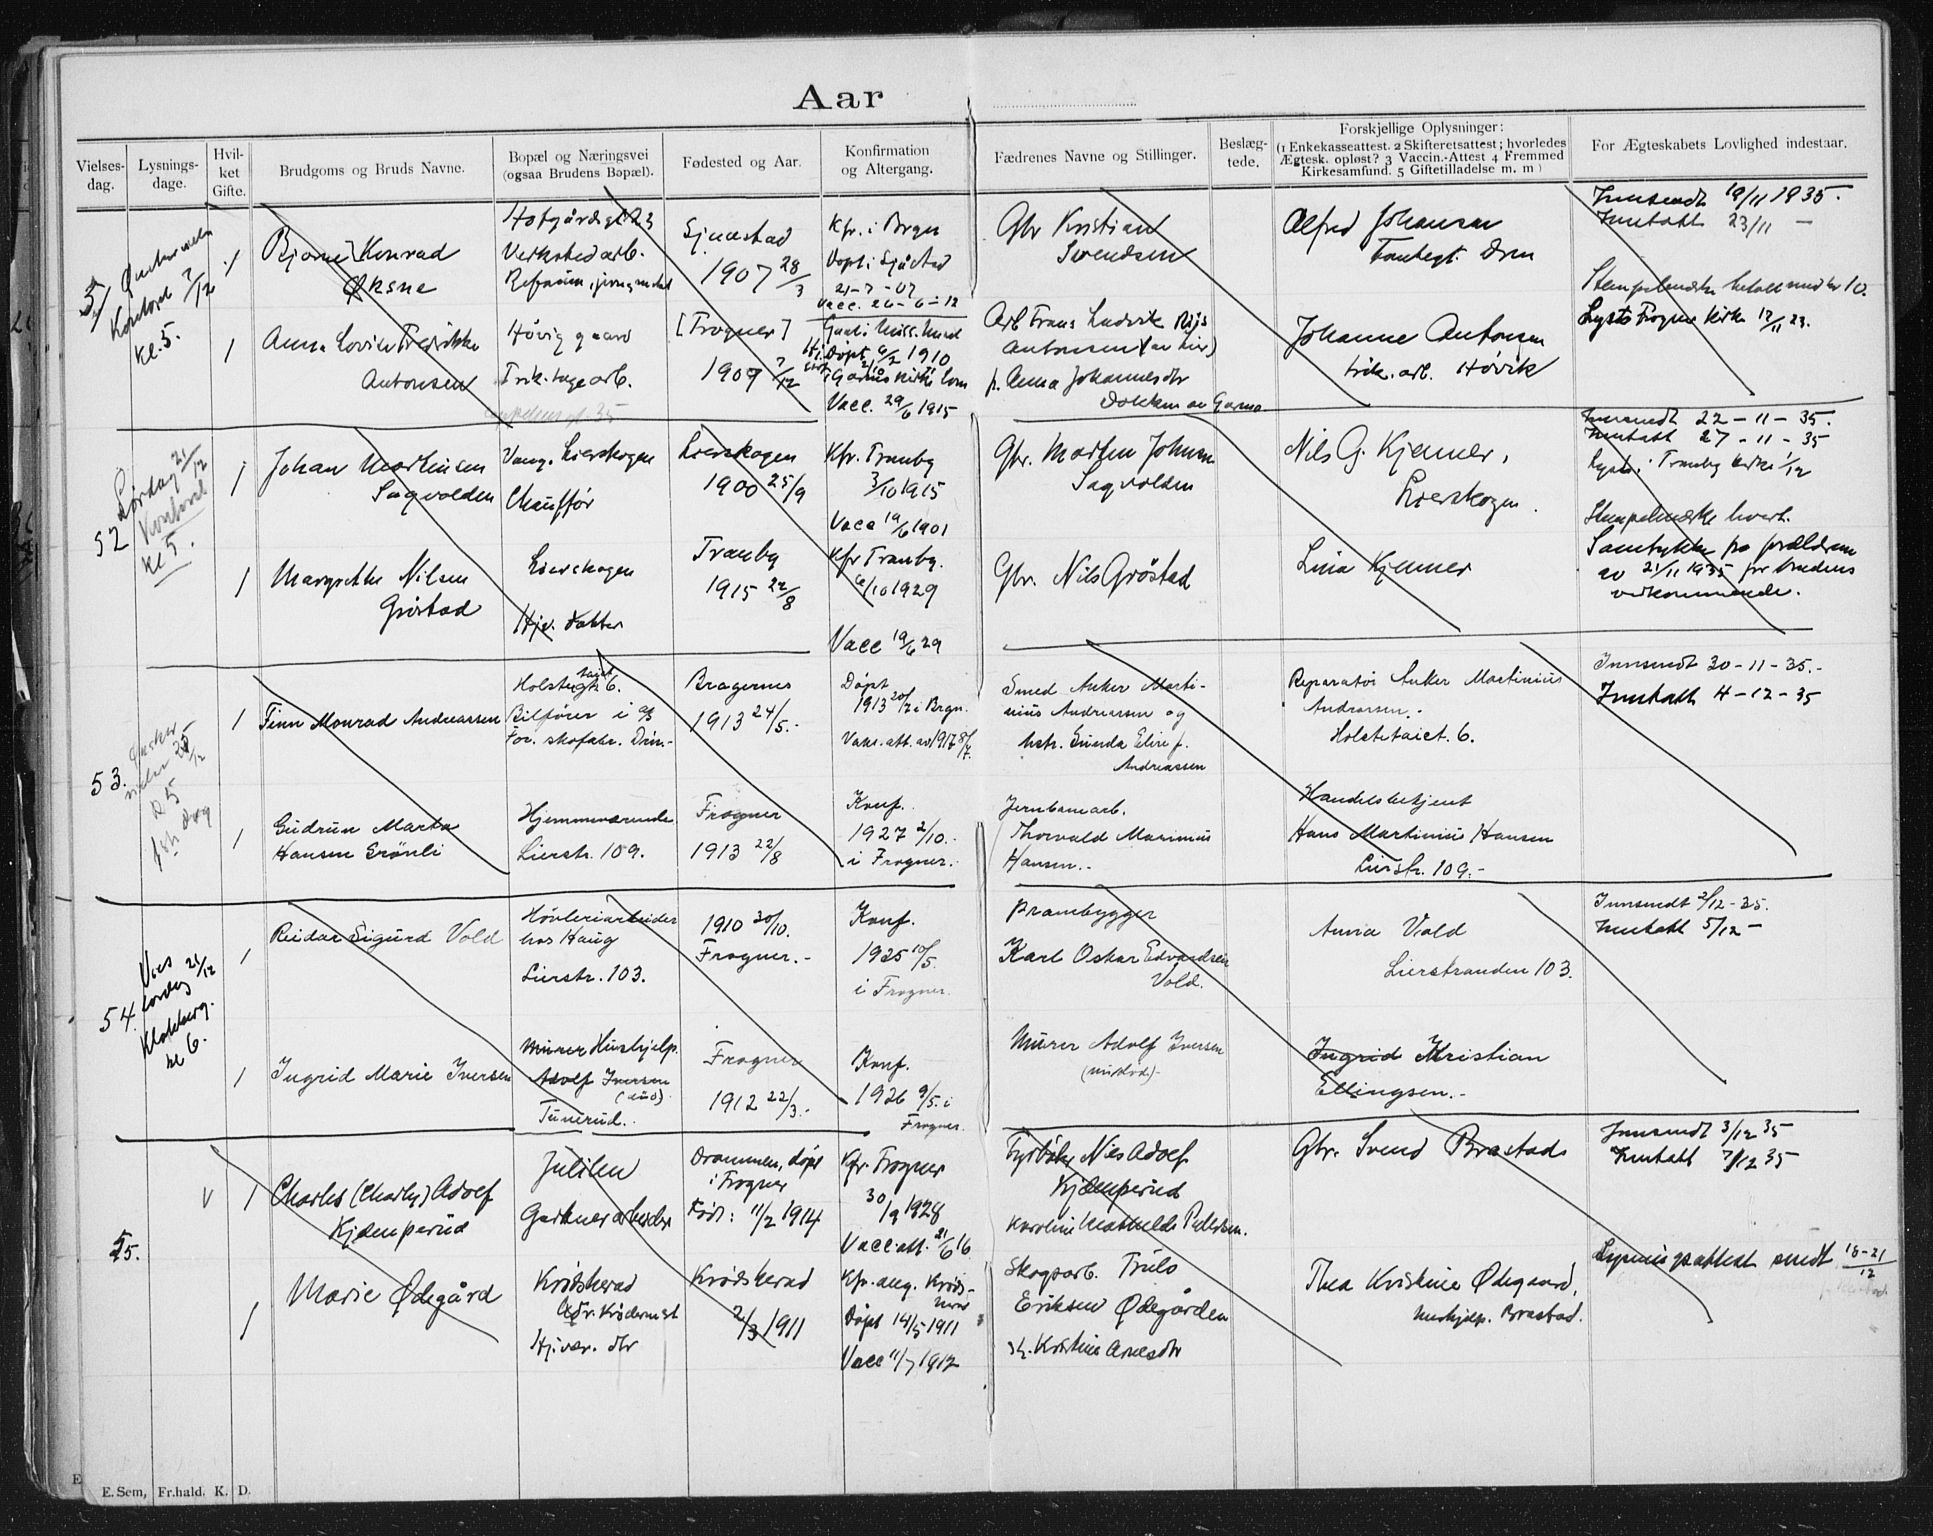 Aar
Vielses-dag.
Lysnings-dage.
Hvil-ket Gifte.
Brudgoms og Bruds Navne.
Bopæl og Næringsvei
(ogsaa Brudens Bopæl).
Fødested og Aar.
Konfirmation
og Altergang.
Fædrenes Navne og Stillinger.
Beslæg-tede.
Forskjellige Oplysninger:
(1 Enkekasseattest. 2 Skifteretsattest; hvorledes
Ægtesk. opløst? 3 Vaccin.-Attest 4 Fremmed
Kirkesamfund. 5 Giftetilladelse m. m)
For Ægteskabets Lovlighed indestaar.
Kontoret 7/12
Kl. 5.
1
Bjarne Konrad
Øksne
Verkstedarb.
1907 28/3
Kfr. i Brgn
Døpt i Sjåstad
21-7-07
Vacc. 26-6-12
Gbr Kristian
Svendsen
Alfred Johansen
Drm
Innsendt 19/11 1935.
Inntatt 23/11 —
1
Anna Lovise Fredrikke
Antonsen
Høvig gaard
[Frogner]
1907 7/12
Døpt 6/2 1910
Vacc. 29/6 1915
Arb Frans Ludvik
Antonsen (av Lier)
f. Anna Johannesdtr
Johanne Antonsen
Høvik
Lyst i Frogner Kirke
52
Lørdag 21/12
Kontoret
Kl 5.
1
Johan Martinsen
Sagvolden
Vang. Lierskogen
Chauffør
Lierskogen
1900 25/9
Kfr. Tranby
3/10 1915
Vacc 19/6 1901
Gbr. Morten Johnsen
Sagvolden
Nils G. Kjenner,
Lierskogen.
Innsendt 22-11-35.
Inntatt 27-11-35
Lyst i Tranby kirke 1/12
1
Margrethe Nilsen
Grøstad
Lierskogen
Hjv. datter
Tranby
1915 22/8
Kfr Tranby.
6/10 1929
Vacc 19/6 29
Gbr. Nils Grøstad
Lina Kjenner
Stempelmerke hvert.
Samtykke fra foreldrene
av 21/11 1935 for brudens
vedkommende.
53.
1
Finn Monrad Andreassen
Holstegt. 6.
Bilfører i
For. skofabr. Drm.
Bragernes
1913 24/5.
Døpt
1913 20/7 i Brgn.
Vaks. att. av 1917 8/7.
Smed Anker Marti-
nius Andreassen og
hstr. Gunda Elise f.
Andreassen
Reparatør Anker Martinius
Andreassen.
Holstetaiet. 6.
Innsendt 30-11-35.
Inntatt 4-12-35
1
Gudrun Marta
Hansen Grönli
Hjemmeværende
Lierstr. 109.
Frogner
1913 22/8
Konf.
1927 2/10.
i Frogner.
Jernbanearb.
Thorvald Marinius
Hansen.
Handelsbetjent
Hans Martinius Hansen
Lierstr. 109.
54.
Vies
lørdag 21/12
kl 6.
1
Reidar Sigurd Vold
Høvleriarbeider
hos Haug
Lierstr. 103.
1910 30/10.
Frogner.
Konf.
1925 10/5.
i Frogner.
Prambygger
Karl Oskar Edvardsen
Vold.
Anna Vold
Lierstranden 103.
Innsendt 2/12-35.
Inntatt 5/12 —
1
Ingrid Marie Iversen
Murer Hushjelp.
Adolf Iversen
(død)
Tuverud.
Frogner
1912 22/3.
Konf.
1926 9/5. i
Frogner.
Murer Adolf Iversen
Ingrid Kristian
Ellingsen.
55.
V
1
Charles (Charly) Adolf
Kjemperud
Julilen
Gartnerarbeider
Drammen, døpt
i Frogner
Født: 11/2 1914
Kfr. Frogner
30/9 1928
Vacc. att. 21/6 16
Fyrbøter Nils Adolf
Kjemperud
Karoline Mathilde Pedersen.
Gbr. Svend Brastad
Innsendt 3/12 35
Inntatt 7/12 35
1
Marie Ødegård
Krødsherad
Adr. Krøderen st
Hj.vær. dtr
Krødsherad
2/3 1911
Kfr. ang. Krøds-
herad
Døpt 14/5 1911
Vacc 11/7 1912
Skogsarb. Truls
Eriksen Ødegården
Kristine Arnesdtr
Thea Kristine Ødegaard,
Hushjelp. Brastad.
Lysningsattest sendt 18-21/12
E. Sem, Fr.hald. K. D.